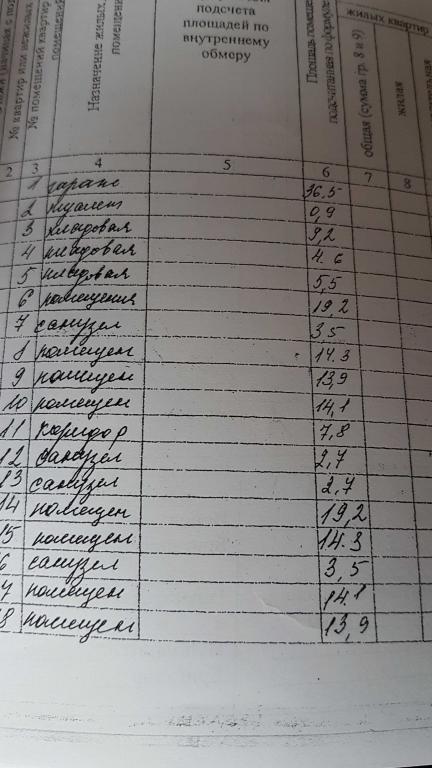 № квартир или нежилых
№ помещений квартир
Назначение жилых,
помещени
подсчета
площадей по
внутреннему
обмеру
Площадь помеще
подсчитанная по формуле
жилых квартир
общая (сумма гр. 8 и 9)
жилая
2 3 4 5 6 7 8
1 гараж 36,5
2 туалет 0,9
3 кладовая 9,2
4 кладовая 4.6
5 кладовая 5,5
6 помещения 19,2
7 санузел 35
8 помещен 14.3
9 помещен 13,9
10 помещен 14,1
11 коридор 7,8
12 санузел 2,7
13 санузел 2,7
14 помещен 19,2
15 помещен 14.3
6 санузел 3,5
7 помещен 14.1
8 помещен 13,9